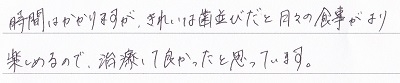 時間はかかりますが、きれいは歯並びだと日々の食事がより
楽しめるので、治療して良かったと思っています。